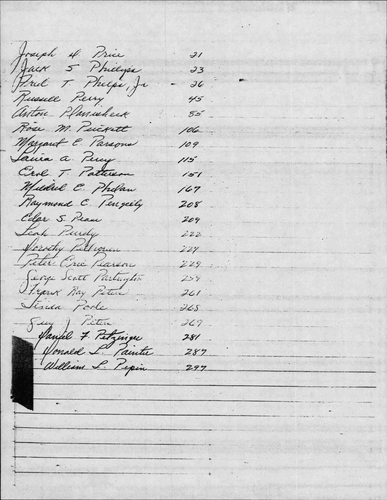 Joseph H Price 21
Jack S Phillips 23
Paul T Phelps, Jr 26
Russell Perry 45
Anton 55
Rose M. Puckett 106
Margaret E Parsons 109
Laura A Perry 115
Carl T. Patterson 151
Mildred E. Phelan 167
Raymond C Pengelly 208
Edgar S. Pean 209
Leah Purdy 222
Dorothy 224
Peter Eric Pearson 229
George Scott Partington 259
Frank Ray Peter 261
Linda Poole 265
Guy J. Peter 269
Daniel F Patzinger 281
Donald L. Painter 287
William L. Pepin 297